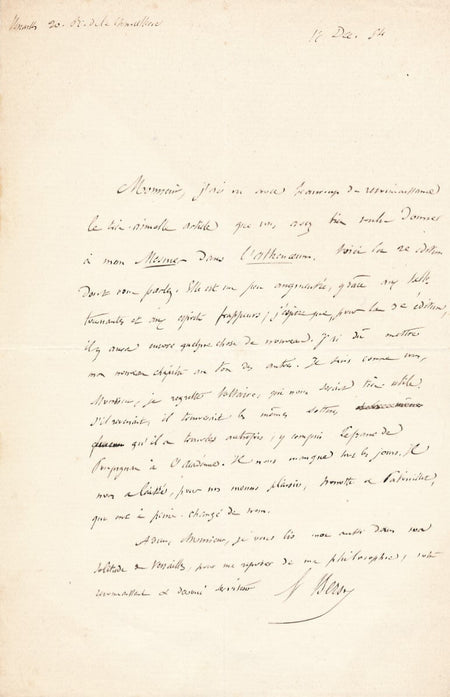 Versailles 20. Pl. de la
15 Dec. 54
Monsieur, j'ai vu avec beaucoup de reconnaissance
le très-aimable article que vous avez bien voulu donner
à mon Mesmer dans l'athenaeum. Voici la 2e édition
dont vous parlez. Elle est un peu augmentée, grâce aux tables
tournantes et aux esprits frappeurs; j'espère que, pour la 3e édition,
il y aura encore quelque chose de nouveau. J'ai dû mettre
mon nouveau chapitre au ton des autres. Je suis comme vous,
Monsieur, je regrette Voltaire, qui nous serait bien utile.
S'il revenait, il trouverait les mêmes sottises
qu'il a trouvées autrefois, y compris Lefranc de
Pompignan à l'Académie. Il nous manque tous les jours. Il
nous a laissés, pour nos menus plaisirs, Nonotte et Patouillet,
qui ont à peine changé de nom.
Adieu, Monsieur, je vous lis moi aussi dans ma
solitude de Versailles, pour me reposer de ma philosophie; votre
reconnaissant et dévoué serviteur
Bersot